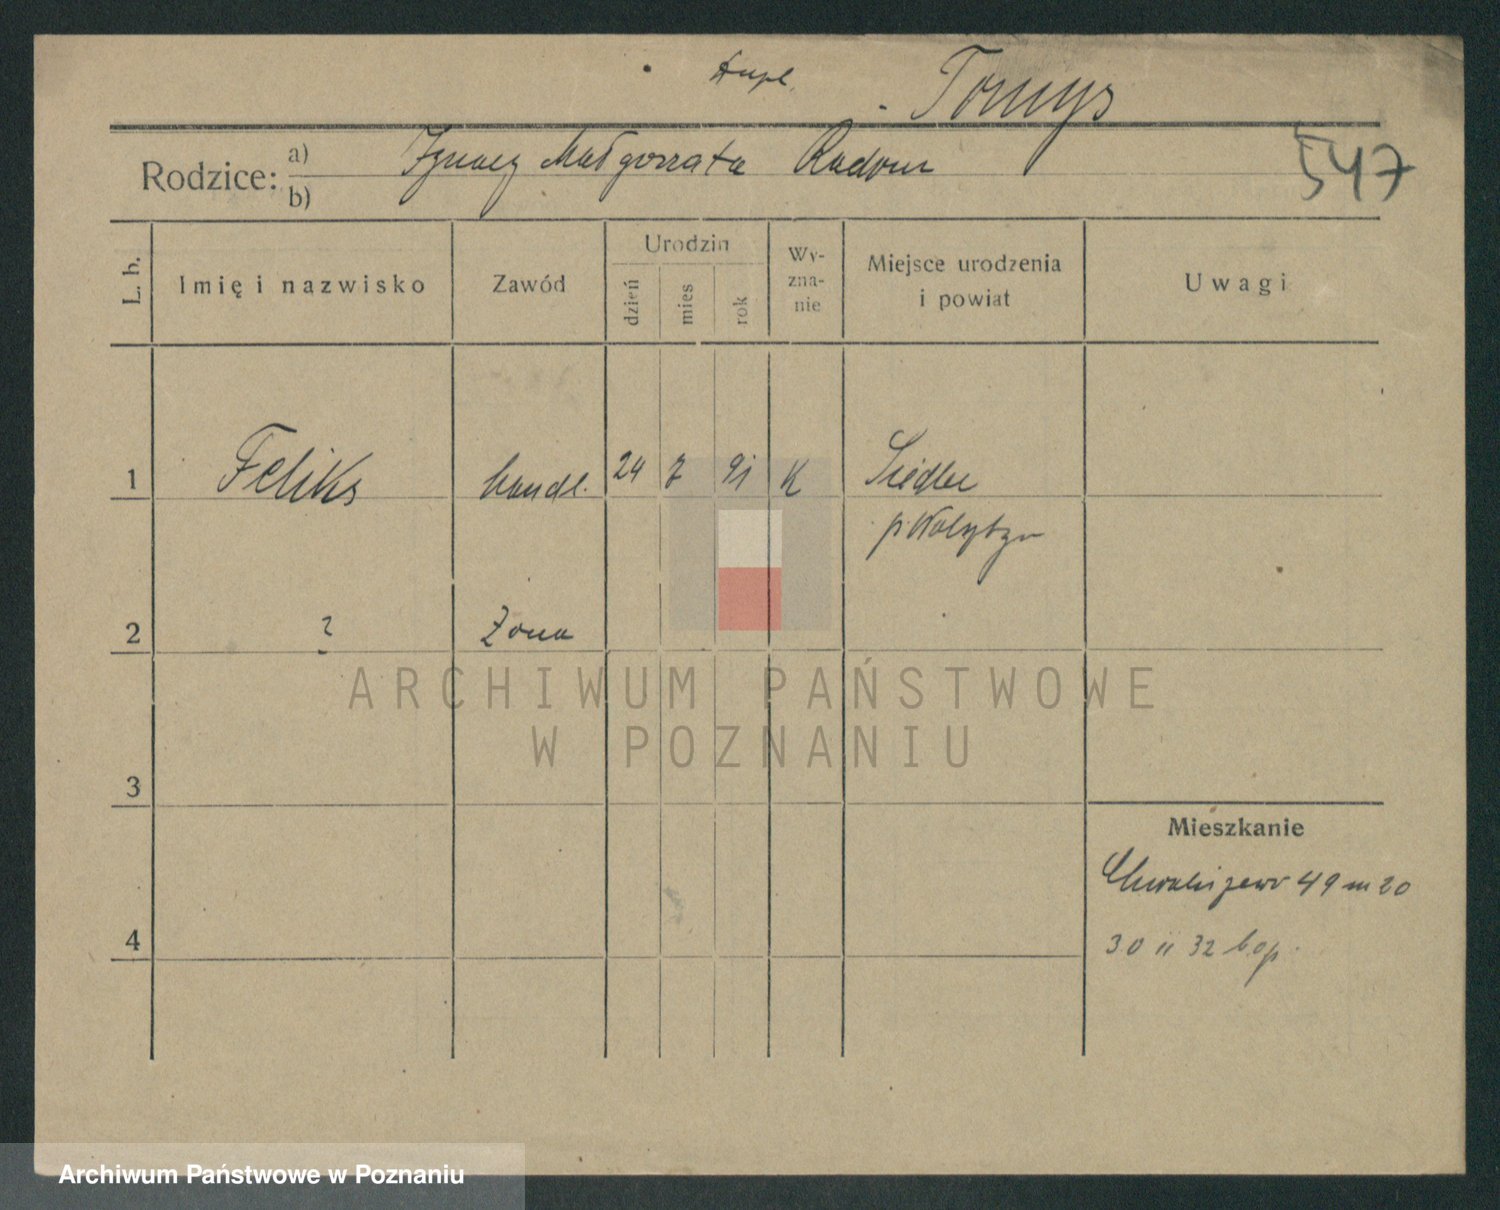 Tomys
Rodzice: a) Ignacy Małgorzata Radom
b)
547
L. b.
Imię i nazwisko
Zawód
Urodzin
dzień
mies
rok
Wy-
zna-
nie
Miejsce urodzenia
i powiat
Uwagi
1 Feliks handl. 24 7 91 K Siedlec
p.Wolsztyn
2 ? Żona
3
4
Mieszkanie
Chwaliszewo 49 m 20
30 11 32
ARCHIWUM PAŃSTWOWE
W POZNANIU
Archiwum Państwowe w Poznaniu